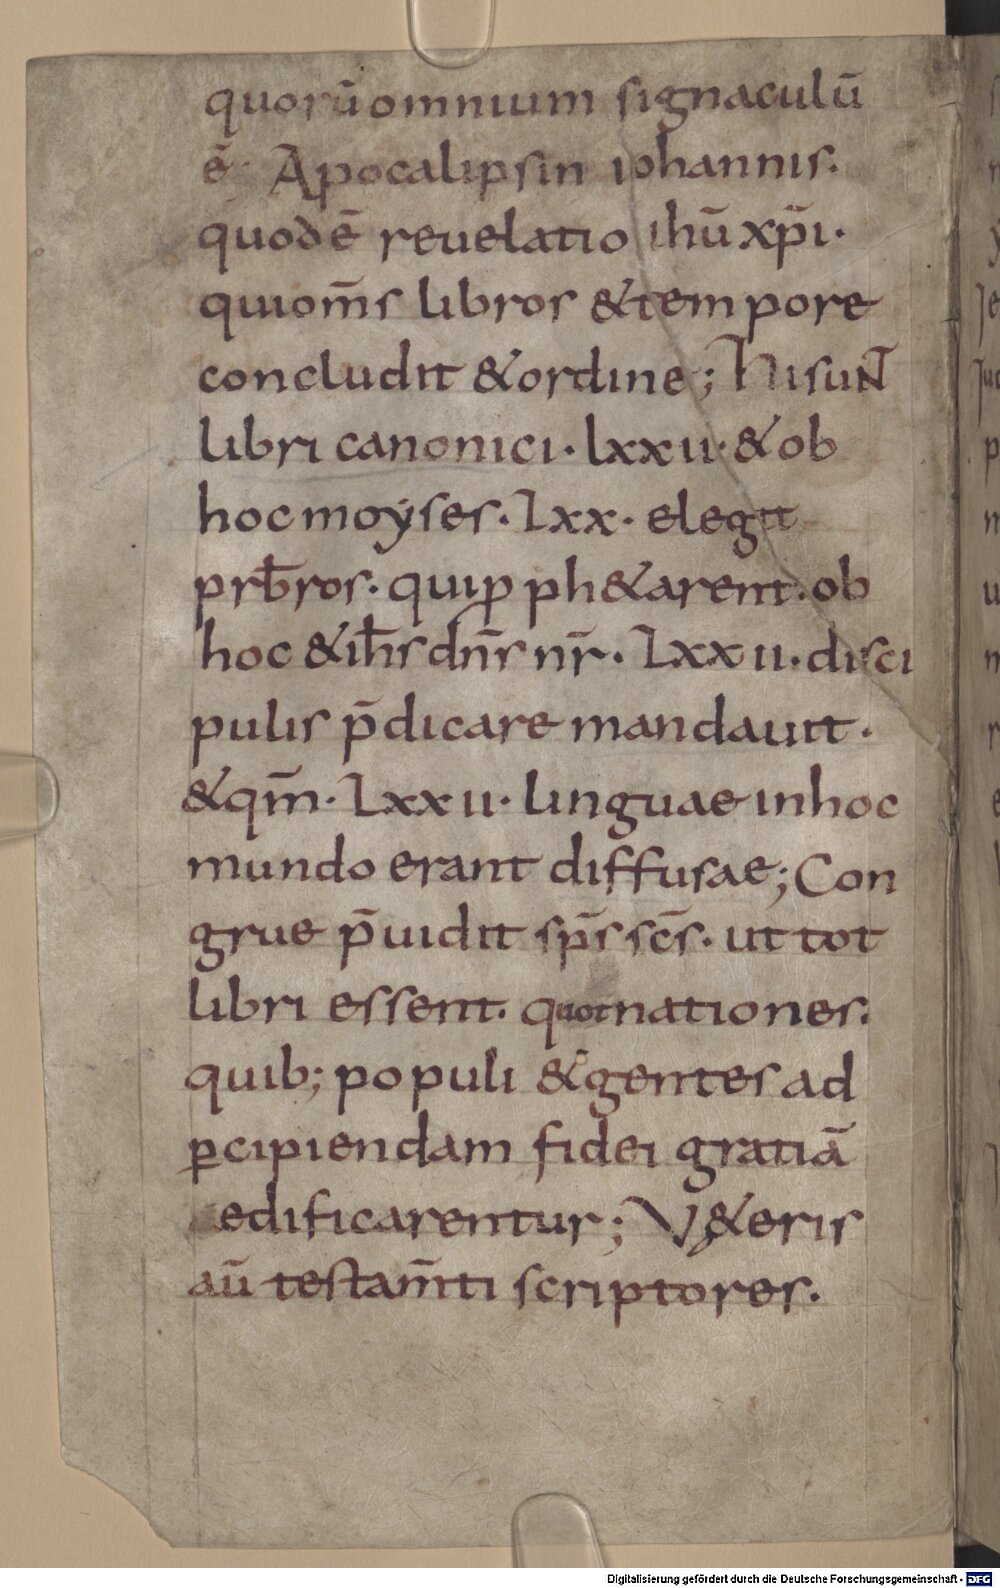 quorū omnium signaculū
ē· Apocalipsin iohannis·
quod ē reuelatio ihū xp̄i·
qui om̄s libros & tempore
concludit & ordine; Hi sunt
libri canonici· lxxii· & ob
hoc moẏses· Lxx· elegit
prb̄ros· qui ꝓph&arent· ob
hoc & ih̄s dn̄s nr̄· Lxxii· disci
pulis p̄dicare mandauit·
& qm̄· Lxxii· linguae in hoc
mundo erant diffusae; Con
grue p̄uidit sp̄s sc̄s· ut tot
libri essent· quot nationes·
quib; populi & gentes ad
ꝑcipiendam fidei gratiā
edificarentur; V&eris
aū testam̄ti scriptores·
Digitalisierung gefördert durch die Deutsche Forschungsgemeinschaft - DFG